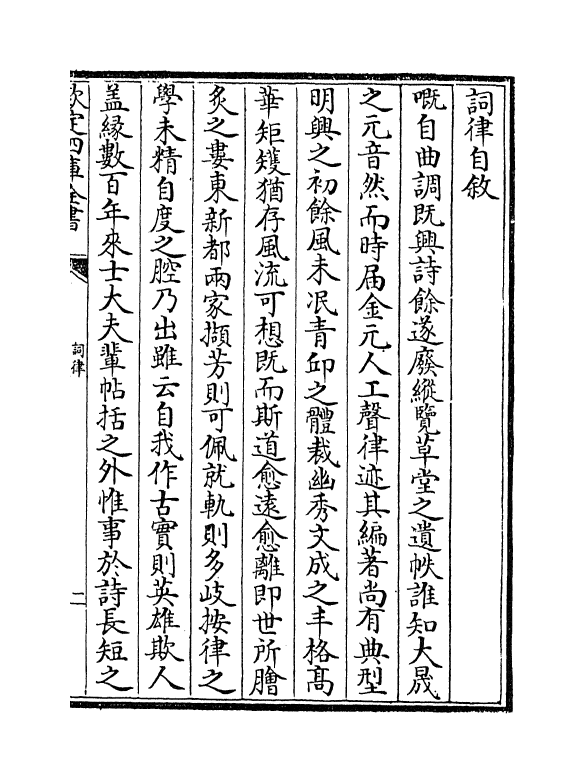 詞律自敘
嘅自曲調既興詩餘遂廢縱覽草堂之遺帙誰知大晟
之元音然而時届金元人工聲律迹其編著尚有典型
明興之初餘風未泯青邱之體裁幽秀文成之丰格髙
華矩矱猶存風流可想既而斯道愈逺愈離即世所膾
炙之婁東新都兩家擷芳則可佩就軌則多歧按律之
學未精自度之腔乃出雖云自我作古實則英雄欺人
盖縁數百年來士大夫輩帖括之外惟事於詩長短之
欽定四庫全書
詞律
二